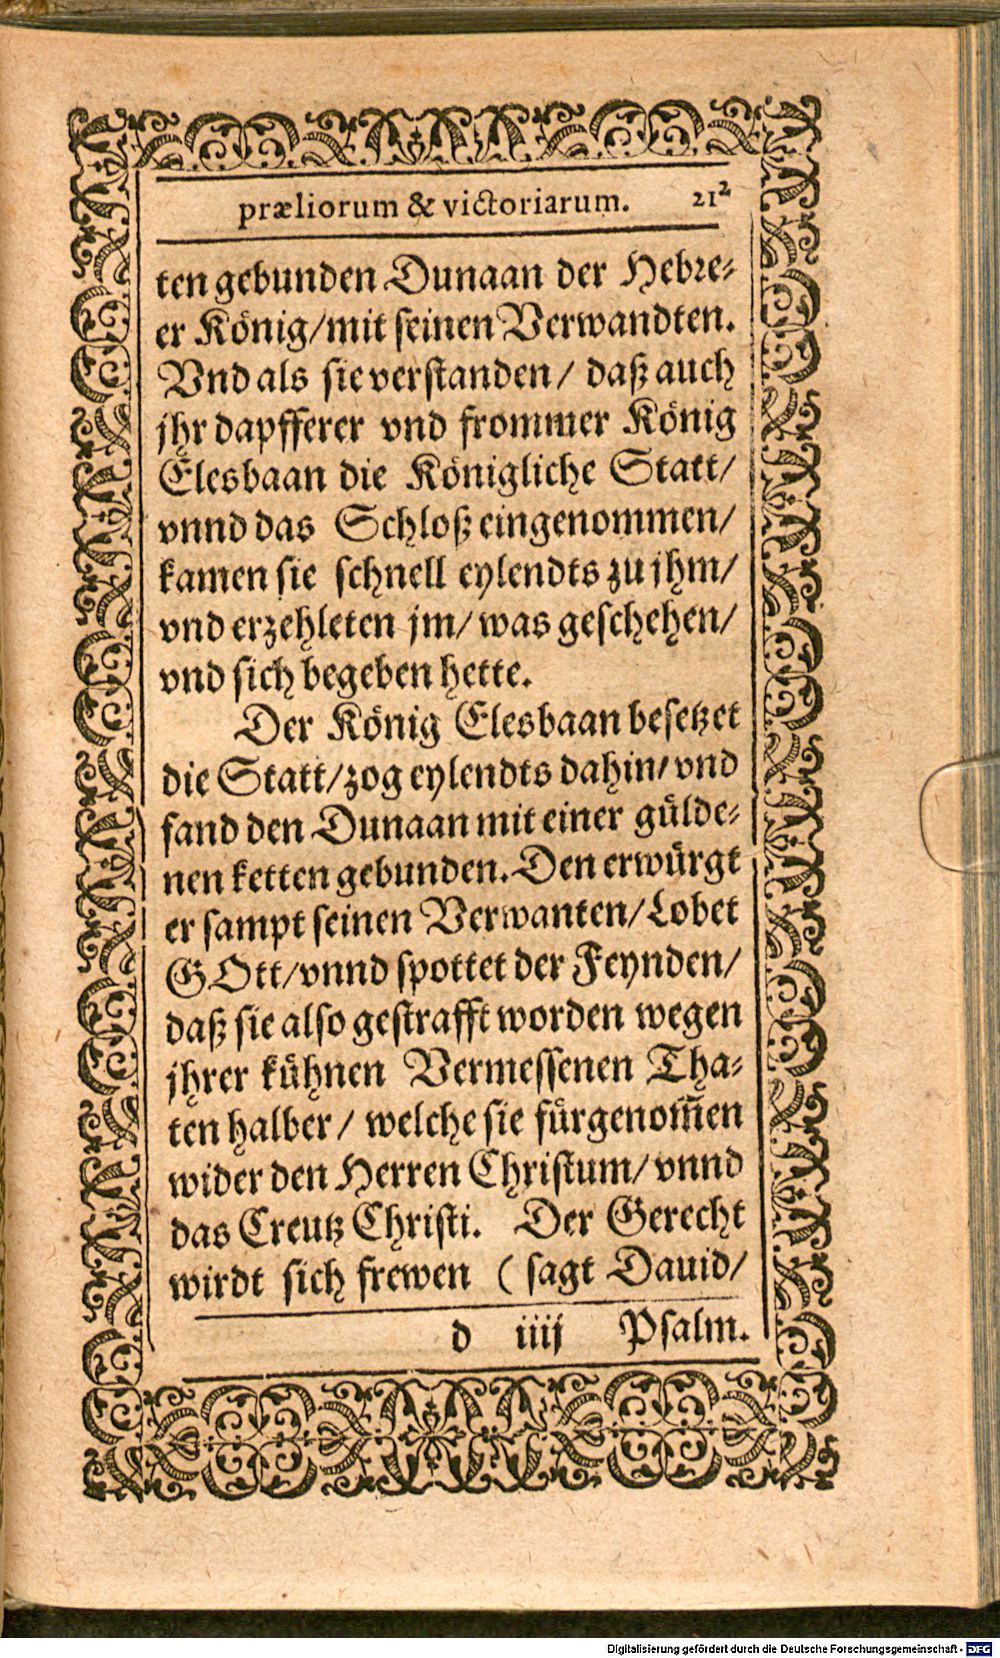 præliorum & victoriarum. 212
ten gebunden Dunaan der Hebre-
er König/mit seinen Verwandten.
Vnd als sie verstanden/ daß auch
jhr dapfferer vnd frommer König
Elesbaan die Königliche Statt/
vnnd das Schloß eingenommen/
kamen sie schnell eylendts zu jhm/
vnd erzehleten jm/ was geschehen/
vnd sich begeben hette.
Der König Elesbaan besetzet
die Statt/zog eylendts dahin/vnd
fand den Dunaan mit einer gülde-
nen ketten gebunden. Den erwürgt
er sampt seinen Verwanten/Lobet
GOtt/vnnd spottet der Feynden/
daß sie also gestrafft worden wegen
jhrer kühnen Vermessenen Tha-
ten halber/ welche sie fürgenom̃en
wider den Herren Christum/vnnd
das Creutz Christi. Der Gerecht
wirdt sich frewen (sagt Dauid/
d iiij Psalm.
Digitalisierung gefördert durch die Deutsche Forschungsgemeinschaft - DFG